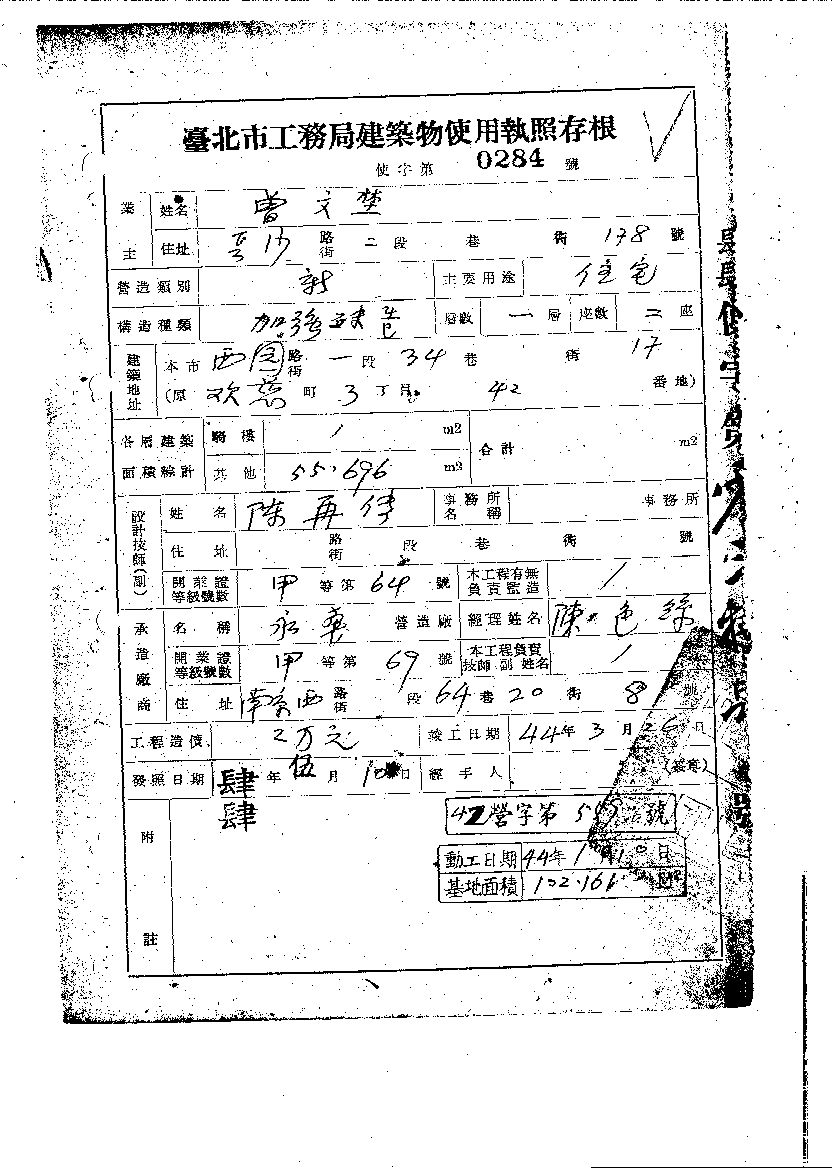 臺北市工務局建築物使用執照存根
使字第 0284 號
業主 姓名 曾文
住址 路街 二段 巷 街 178 號
營造類別 新 主要用途 住宅
構造種類 加強磚造 層數 一層 座數 二座
建築地址 本市 西園路街 一段 34巷 街 17
(原 町 3丁目 42 番地)
各層建築面積總計 騎樓 / m2 合計 m2
其他 55.696 m2
設計技師(副) 姓名 陳再 事務所名稱 事務所
住址 路街 段 巷 街 號
開業證等級號數 甲等第 64 號 本工程有無負責監造 /
承造廠商 名稱 永華 營造廠 經理姓名 陳色
開業證等級號數 甲等第 69 號 本工程負責技師副姓名 /
住址 南京西路街 段 64巷 20街 8號
工程造價 2万元 竣工日期 44年3月26日
發照日期 肆肆年伍月10日 經手人 (簽章)
42營字第 號
動工日期 44年1月10日
基地面積 102.166
附註